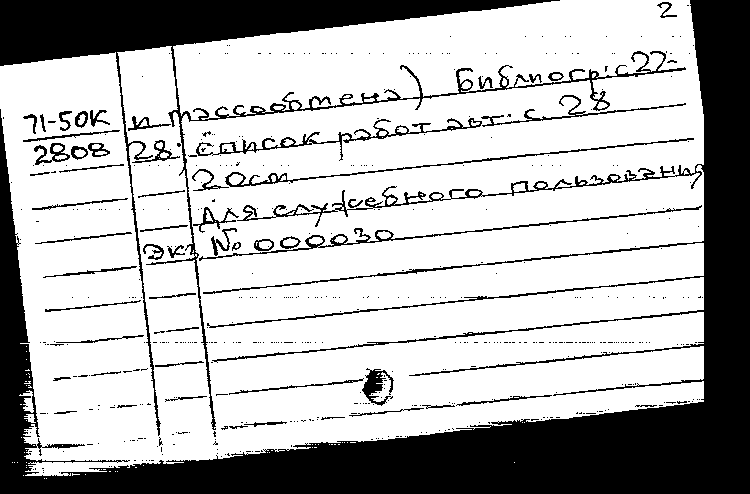 2
71-50К и массообмена) Библиогр: с 27-
2808 28; Список работ авт: с. 28
20см
Для служебного пользования
Экз. № 000030